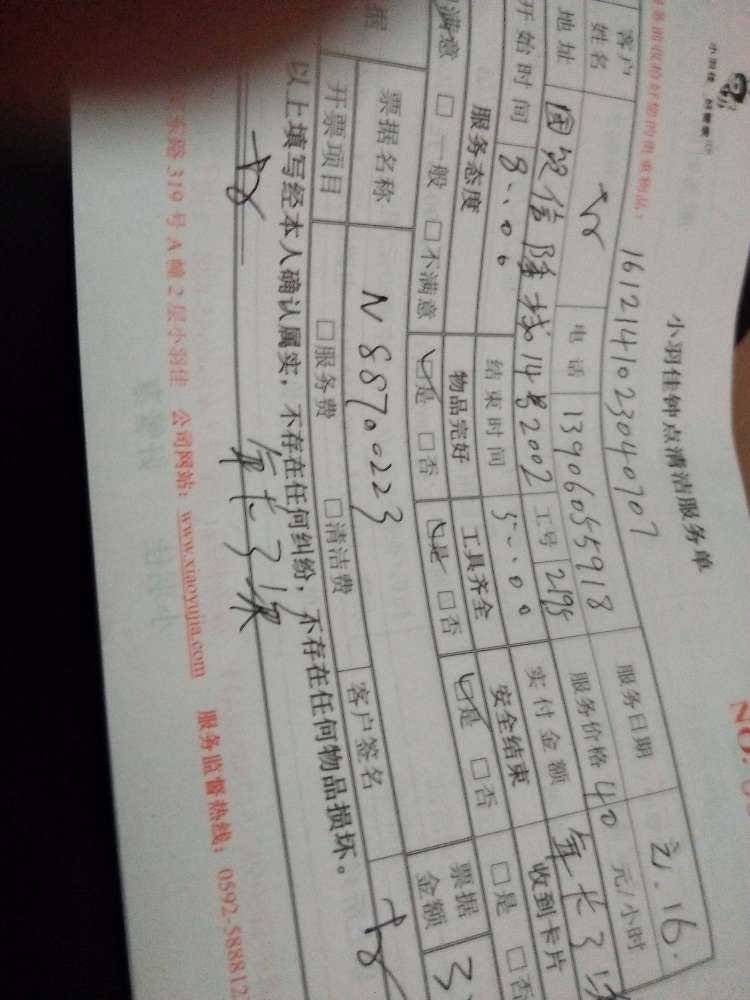 小羽佳
小羽佳钟点清洁服务单
NO.
务前收拾好您的贵重物品!
16121410230407 07
客户姓名
电话 13906055918
服务日期
16.
地址 国贸信隆城14号2002
工号 2195
服务价格 40 元/小时
开始时间 8:00
结束时间 5:00
实付金额
服务态度
物品完好
工具齐全
安全结束
收到卡片
满意 □一般 □不满意
是 □否
是 □否
是 □否
□是 □否
票据名称 N88700223
客户签名
票据金额 3
开票项目 □服务费 □清洁费
以上填写经本人确认属实,不存在任何纠纷,不存在任何物品损坏。
东路319号A幢2层小羽佳 公司网站:www.xiaoyujia.com 服务监督热线:0592-588812